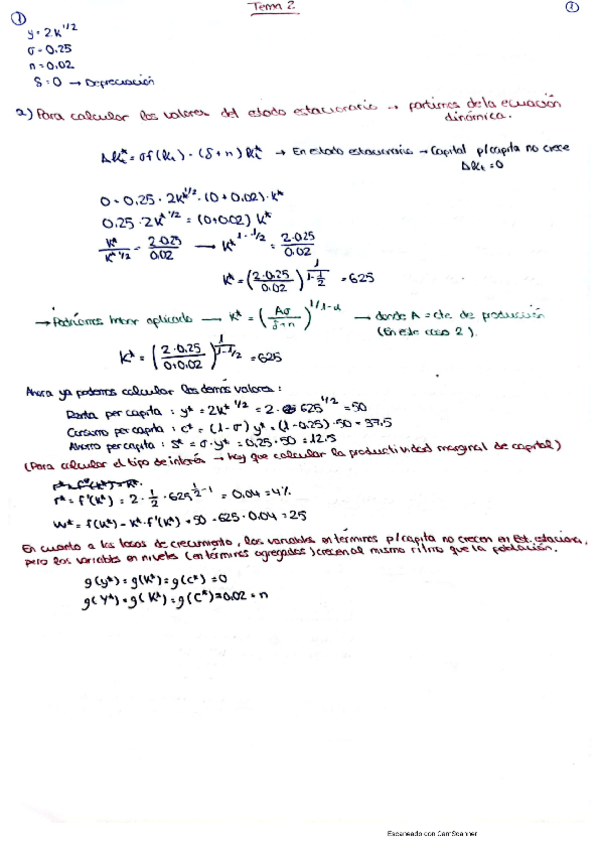 Tema 2
1
1
y = 2k^1/2
σ = 0.25
n = 0.02
δ = 0 → Depreciación
a) Para calcular los valores del estado estacionario → partimos de la ecuación
dinámica.
Δk*t = σf(kt) - (δ+n)k*t → En estado estacionario → Capital p/capita no crece
Δkt = 0
0 = 0.25 · 2k^1/2 - (0 + 0.02) · k*
0.25 · 2k*^1/2 = (0+0.02) k*
k*/k*^1/2 = 2·0.25/0.02 → k*^1-1/2 = 2·0.25/0.02
k* = (2·0.25/0.02)^1/1-1/2 = 625
→ Podríamos haber aplicado → k* = (Aσ/δ+n)^1/1-α → donde A = cte. de producción
(En este caso 2).
k* = (2·0.25/0+0.02)^1/1-1/2 = 625
Ahora ya podemos calcular los demás valores:
Renta per capita: y* = 2k*^1/2 = 2 · 625^1/2 = 50
Consumo per capita: c* = (1-σ) y* = (1-0.25) · 50 = 37.5
Ahorro per capita: s* = σ · y* = 0.25 · 50 = 12.5
(Para calcular el tipo de interés → hay que calcular la productividad marginal de capital)
r* = f'(k*) = 2 · 1/2 · 625^1/2-1 = 0.04 = 4%
w* = f(k*) - k* · f'(k*) = 50 - 625 · 0.04 = 25
En cuanto a las tasas de crecimiento, las variables en términos p/capita no crecen en Est. estacion.,
pero las variables en niveles (en términos agregados) crecen al mismo ritmo que la población.
g(y*) = g(k*) = g(c*) = 0
g(Y*) = g(K*) = g(C*) = 0.02 = n
Escaneado con CamScanner